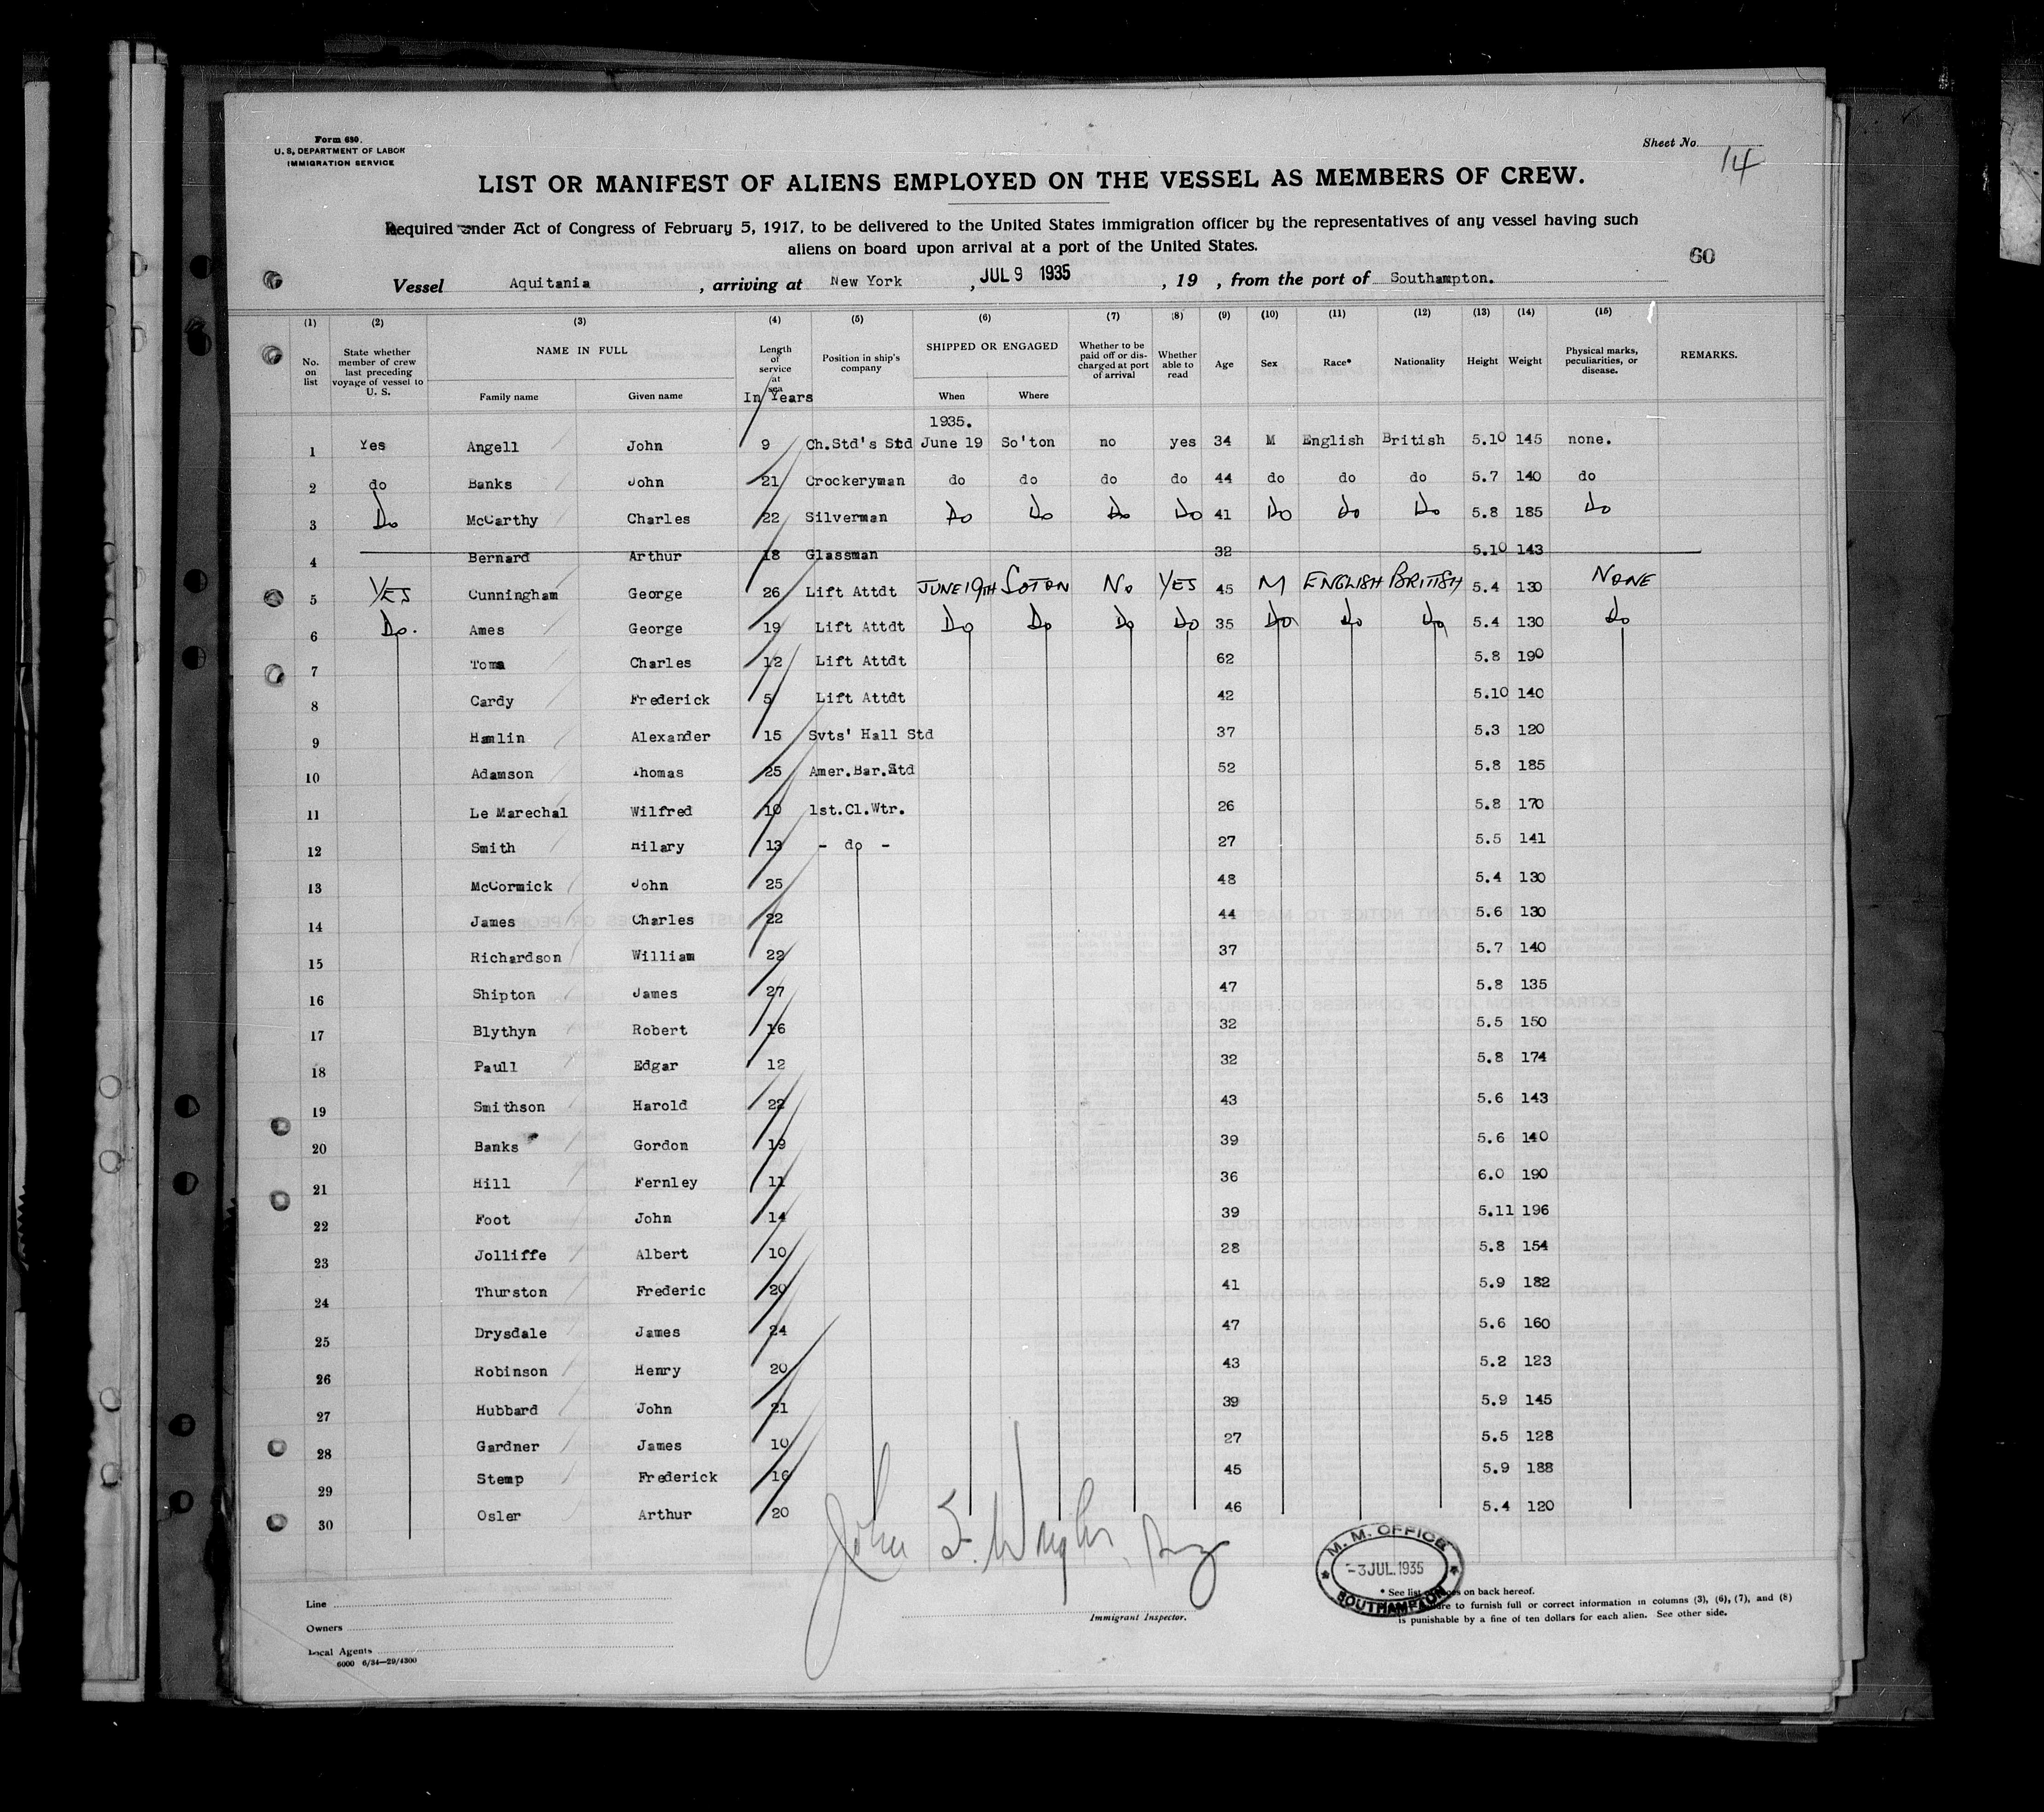 Form 680.
U. S. DEPARTMENT OF LABOR
IMMIGRATION SERVICE
Sheet No. 14
LIST OR MANIFEST OF ALIENS EMPLOYED ON THE VESSEL AS MEMBERS OF CREW.
Required under Act of Congress of February 5, 1917, to be delivered to the United States immigration officer by the representatives of any vessel having such
aliens on board upon arrival at a port of the United States.
60
Vessel Aquitania, arriving at New York, JUL 9 1935, 19 , from the port of Southampton.
(1) (2) (3) (4) (5) (6) (7) (8) (9) (10) (11) (12) (13) (14) (15)
No. on list State whether member of crew last preceding voyage of vessel to U. S. NAME IN FULL Family name Given name Length of service at sea In Years Position in ship's company SHIPPED OR ENGAGED When Where Whether to be paid off or discharged at port of arrival Whether able to read Age Sex Race* Nationality Height Weight Physical marks, peculiarities, or disease. REMARKS.
1935.
1 Yes Angell John 9 Ch.Std's Std June 19 So'ton no yes 34 M English British 5.10 145 none.
2 do Banks John 21 Crockeryman do do do do 44 do do do 5.7 140 do
3 Do McCarthy Charles 22 Silverman Do Do Do Do 41 Do Do Do 5.8 185 Do
4 Bernard Arthur 18 Glassman 32 5.10 143
5 YES Cunningham George 26 Lift Attdt JUNE 19TH SOTON No YES 45 M ENGLISH BRITISH 5.4 130 NONE
6 Do. Ames George 19 Lift Attdt Do Do Do Do 35 Do Do Do 5.4 130 Do
7 Toms Charles 12 Lift Attdt 62 5.8 190
8 Cardy Frederick 5 Lift Attdt 42 5.10 140
9 Hamlin Alexander 15 Svts' Hall Std 37 5.3 120
10 Adamson Thomas 25 Amer.Bar.Std 52 5.8 185
11 Le Marechal Wilfred 10 1st.Cl.Wtr. 26 5.8 170
12 Smith Hilary 13 - do - 27 5.5 141
13 McCormick John 25 48 5.4 130
14 James Charles 22 44 5.6 130
15 Richardson William 22 37 5.7 140
16 Shipton James 27 47 5.8 135
17 Blythyn Robert 16 32 5.5 150
18 Paull Edgar 12 32 5.8 174
19 Smithson Harold 22 43 5.6 143
20 Banks Gordon 19 39 5.6 140
21 Hill Fernley 11 36 6.0 190
22 Foot John 14 39 5.11 196
23 Jolliffe Albert 10 28 5.8 154
24 Thurston Frederic 20 41 5.9 182
25 Drysdale James 24 47 5.6 160
26 Robinson Henry 20 43 5.2 123
27 Hubbard John 21 39 5.9 145
28 Gardner James 10 27 5.5 128
29 Stemp Frederick 16 45 5.9 188
30 Osler Arthur 20 46 5.4 120
John
M. M. OFFICE
-3 JUL.1935
SOUTHAMPTON
Line
Owners
Local Agents
6000 6/34—29/4300
Immigrant Inspector.
* See list of races on back hereof.
to furnish full or correct information in columns (3), (6), (7), and (8)
is punishable by a fine of ten dollars for each alien. See other side.